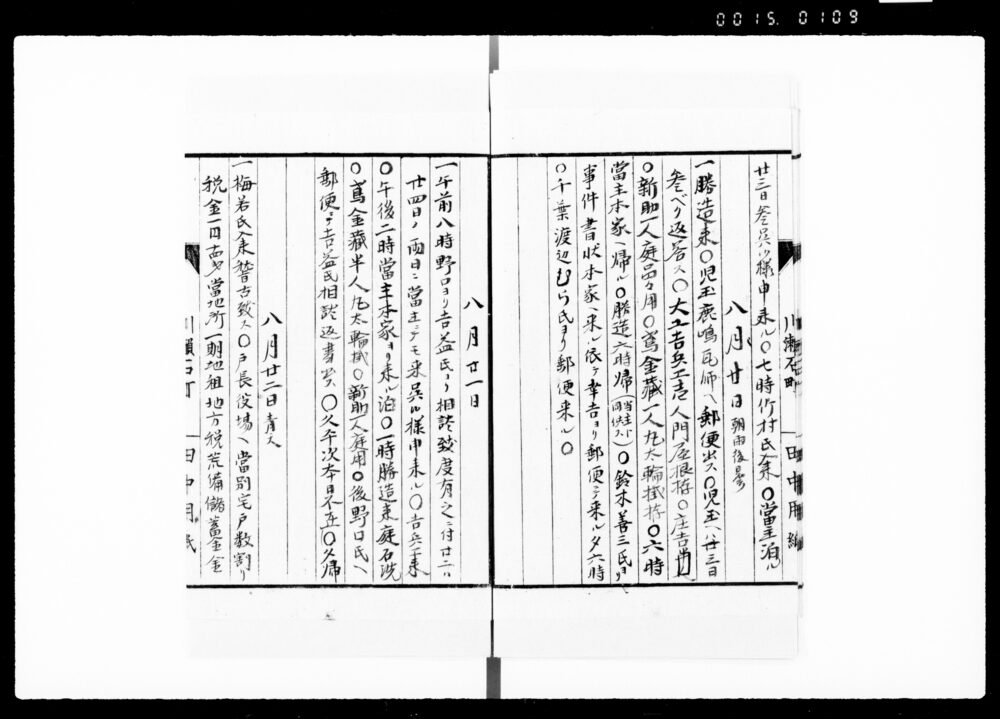 0015.0109
廿三日参呉ル様申来ル〇七時竹村氏来〇當主泊ル
八月廿日 朝雨後曇
一勝造来〇児玉鹿鳴瓦師ヘ郵便出ス〇児玉ハ廿三日
参ベク返答ス〇大工吉兵エ壱人門屋根拵〇庄吉
〇新助一人庭品々用〇鳶金藏一人丸太輪掛拵〇六時
當主本家ヘ帰ル〇勝造六時帰〇鈴木善三氏ヨリ
事件書状本家ヘ来ル依テ幸吉ヨリ郵便ニテ来ル夕六時
〇千葉渡辺むら氏ヨリ郵便来ル〇
川瀬石町
田中用紙
八月廿一日
一午前八時野口ヨリ吉益氏ヨリ相談致度有之ニ付廿三ハ
廿四日ノ両日ニ當主ニテモ来呉ル様申来ル〇吉兵エ来
〇午後二時當主本家ヨリ来ル泊〇一時勝造来庭石洗
〇鳶金藏半人丸太輪掛〇新助一人庭用〇後野口氏ヘ
郵便ニテ吉益氏相談返書出ス〇久平次本日不在〇夕帰
八月廿二日 青天
一梅若氏来稽古致ス〇戸長役場ヘ當別宅戸数割リ
税金一円 當地所一期地租地方税荒備儲蓄金
川瀬石町
田中用紙